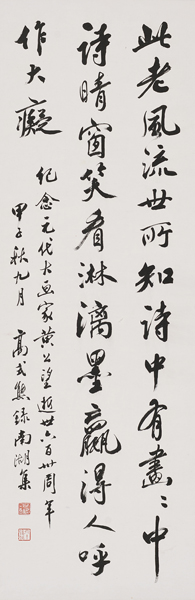 此老風流世所知詩中有畫〻中
詩晴窗笑看淋漓墨贏得人呼
作大癡
紀念元代大画家黄公望逝世六百卅周年
甲子秋九月 高式熊錄南湖集